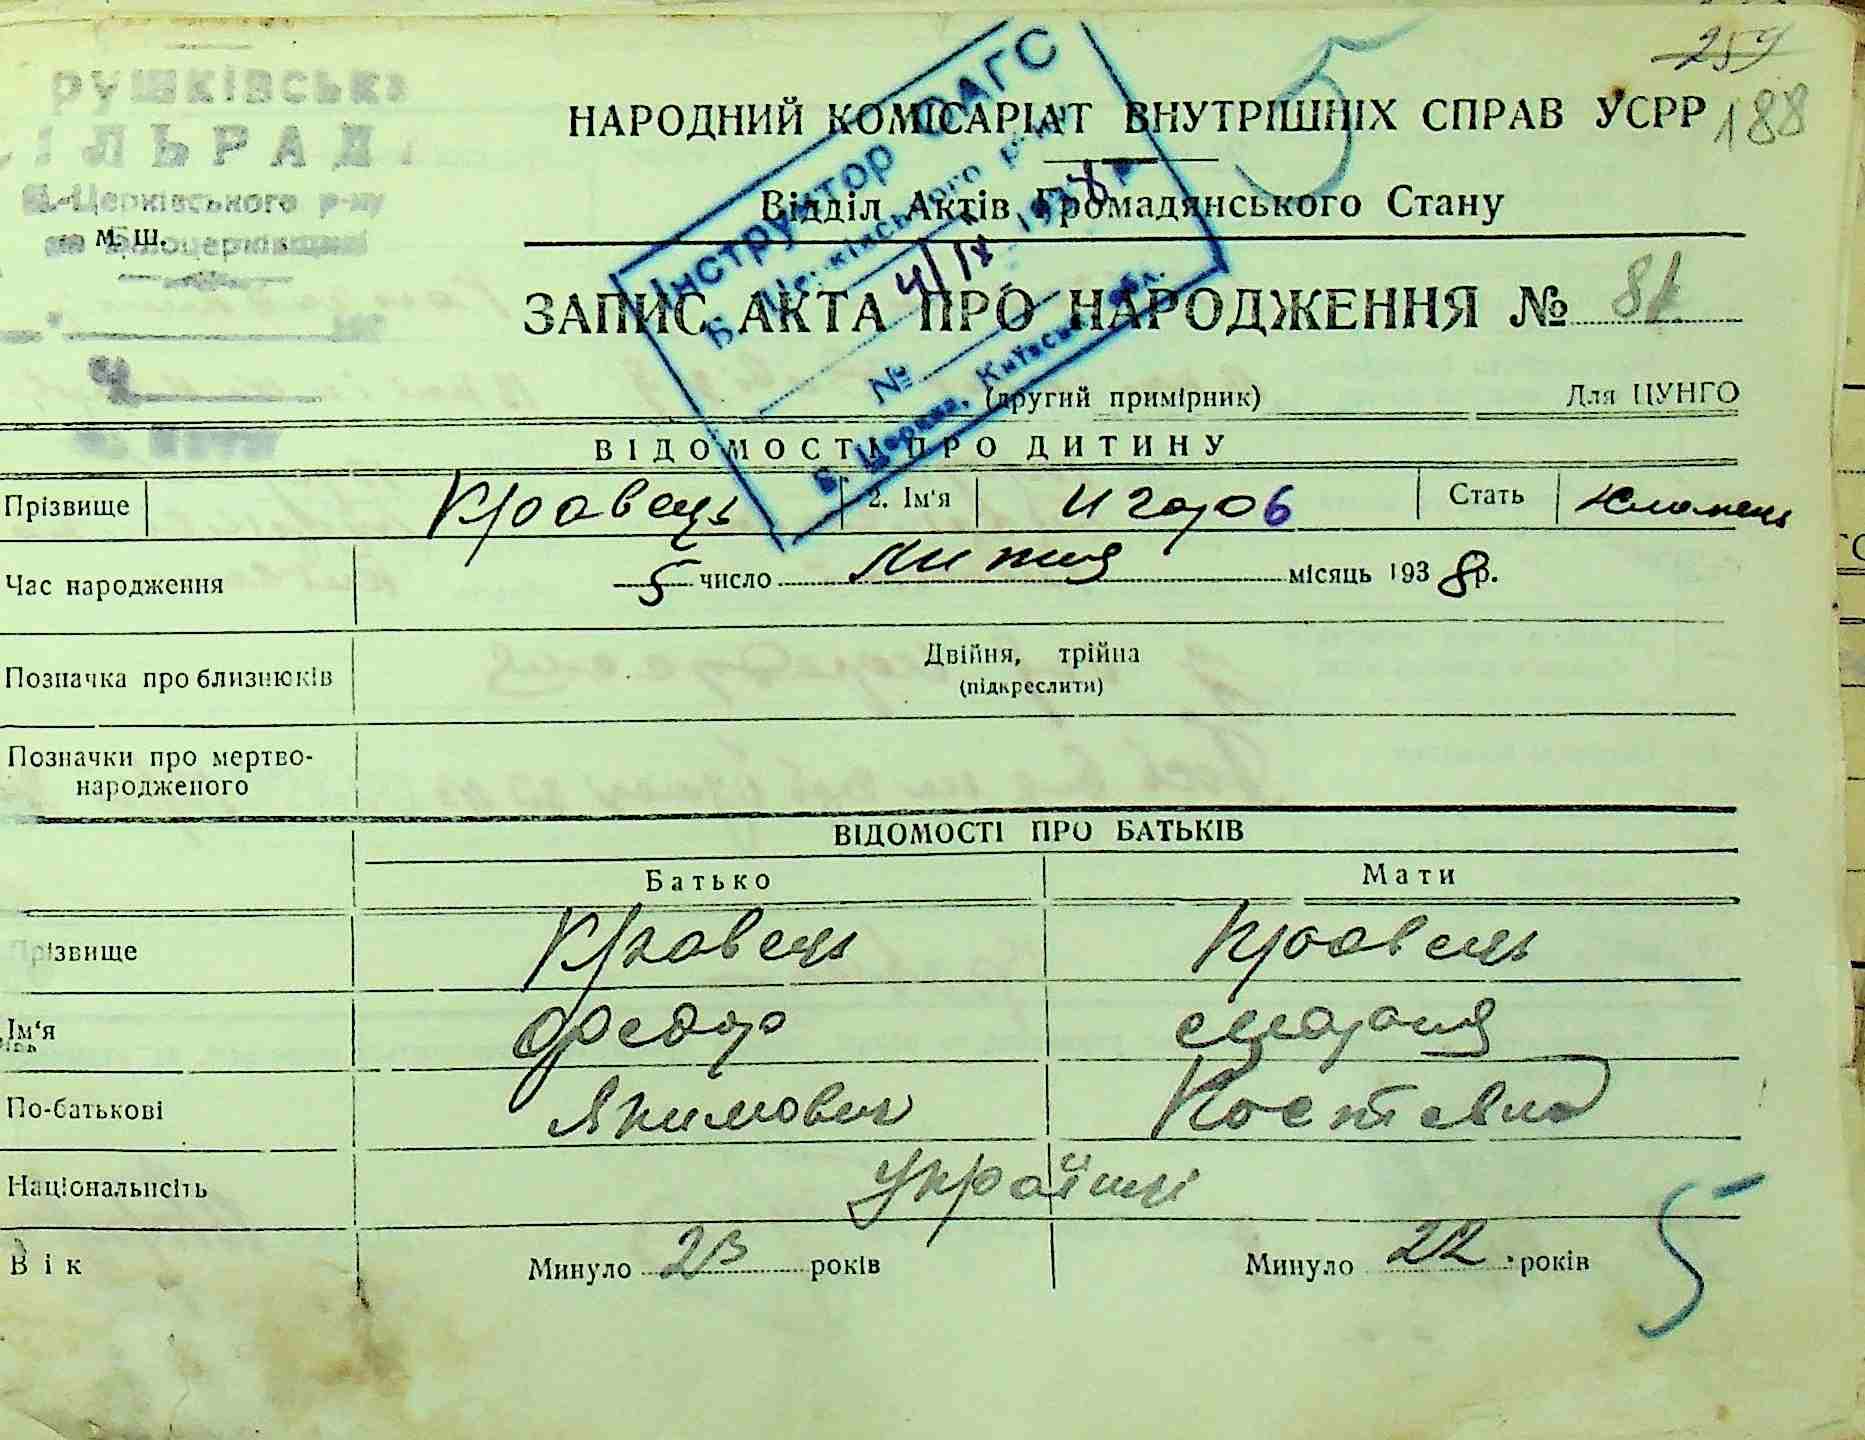 259
188
НАРОДНИЙ КОМІСАРІАТ ВНУТРІШНІХ СПРАВ УСРР
5
Відділ Актів Громадянського Стану
рушківськ
ІЛЬРАД
Б.-Церківського р-ну
м. ш.
Інструктор ЗАГС
р-ну
4/IX 1938 р.
№
Б. Церква, Київськ. обл.
ЗАПИС АКТА ПРО НАРОДЖЕННЯ № 81
(другий примірник) Для ЦУНГО
ВІДОМОСТІ ПРО ДИТИНУ
Прізвище Кравець 2. Ім'я Игорь Стать
Час народження 5 число Липня місяць 1938 р.
Позначка про близнюків Двійня, трійна
(підкреслити)
Позначки про мертво-
народженого
ВІДОМОСТІ ПРО БАТЬКІВ
Батько Мати
Прізвище Кравець Кравець
Ім'я Федор Мария
По-батькові Якимович Костевна
Національність Українці
Вік Минуло 23 років Минуло 22 років
5